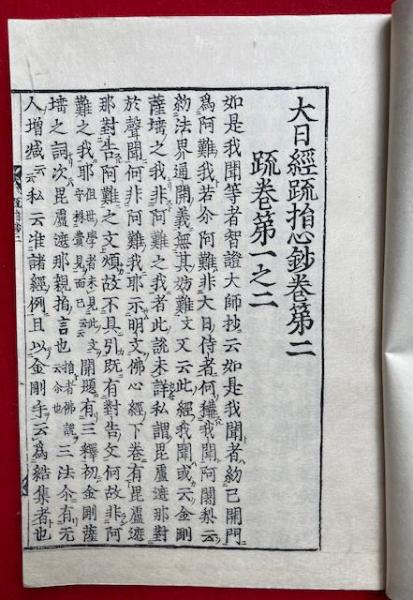 大日經䟽指心鈔卷第二
䟽卷第一之二
如是我聞等者智證大師抄云如是我聞者約已開門
爲阿難我若尒阿難非大日侍者何稱我聞阿闍梨云
約法界通開義無其妨難文又云此經我聞或云金剛
薩埵之我非阿難之我者此說未詳私謂毘盧遮那對
於聲聞何非阿難我耶示明文佛心經下卷有毘盧遮
那對告阿難之文煩故不具引既有對告文何故非阿
難之我耶但世學者未見此文守株見而已云云開題有三釋初金剛薩
埵之詞次毘盧遮那親指言也指者佛說云尒也三法尒有无
人增減云云私云准諸經例且以金剛手云爲結集者也